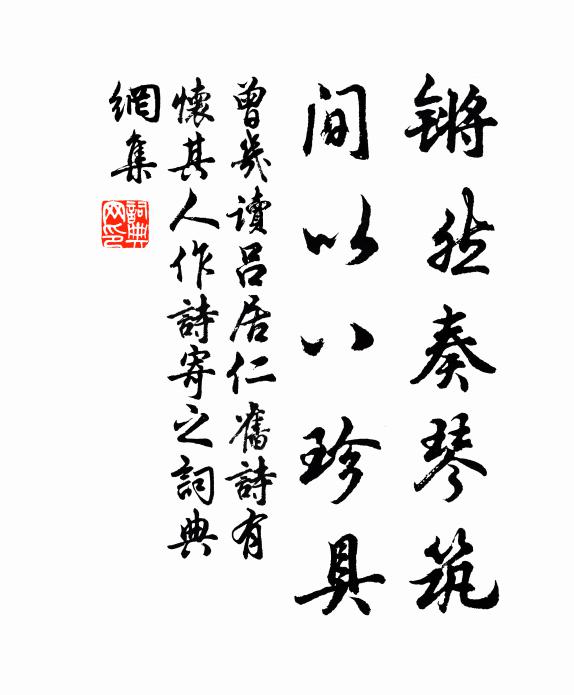 锵然奏琴筑
间以八珍具
曾幾讀呂居仁舊詩有
懷其人作詩寄之詞典
網集
詞典網印